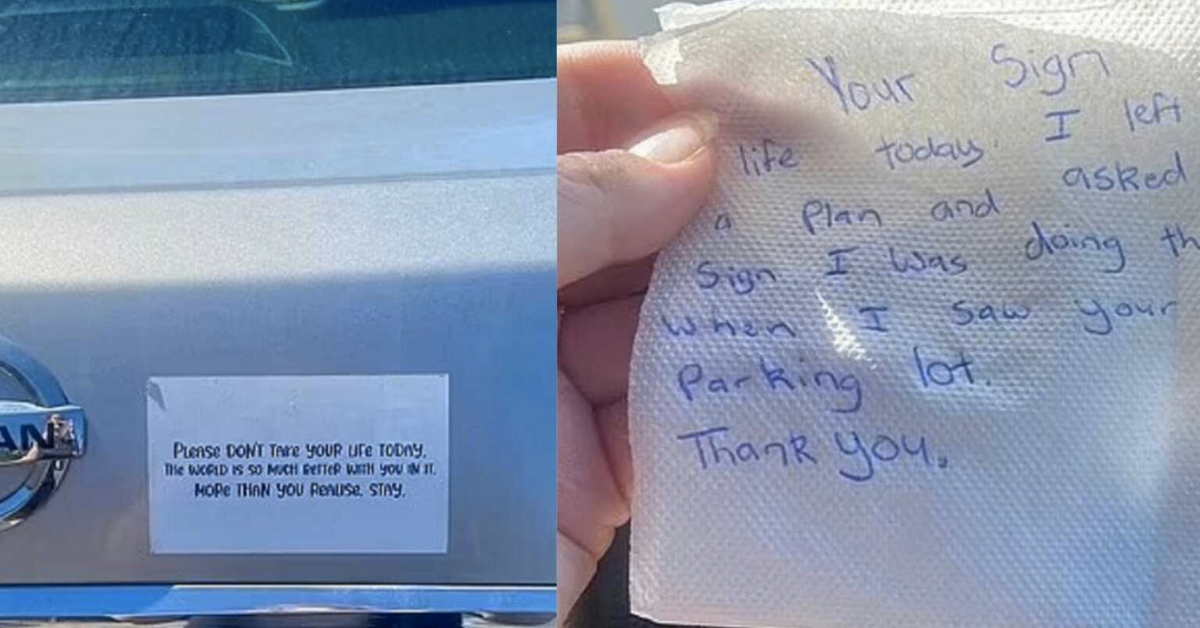 AN
PLeaSe DON'T TaKe YOUR LIFe TODAY.
THe WORLD IS SO MUCH BeTTeR WITH YOU IN IT.
MORe THAN YOU ReALISe. STAY.
Your Sign
life today. I left
a Plan and asked
Sign I was doing th
when I saw your
Parking lot.
Thank you.